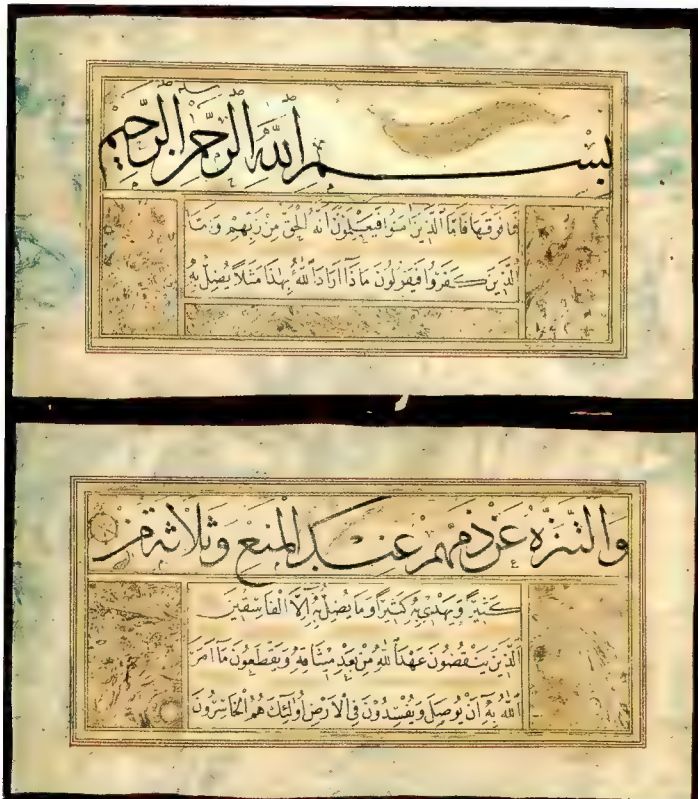 بِسْمِ اللهِ الرَّحْمٰنِ الرَّحِيمِ
فَمَا فَوْقَهَا فَاَمَّا الَّذِينَ اٰمَنُوا فَيَعْلَمُونَ اَنَّهُ الْحَقُّ مِنْ رَبِّهِمْ وَاَمَّا
الَّذِينَ كَفَرُوا فَيَقُولُونَ مَاذَا اَرَادَ اللهُ بِهٰذَا مَثَلًا يُضِلُّ بِهِ
وَالتَّنَزُّهُ عَنْ ذَمِّهِمْ عِنْدَ الْمَنْعِ وَثَلَاثَةٌ مِنْ
كَثِيرًا وَيَهْدِي بِهِ كَثِيرًا وَمَا يُضِلُّ بِهِ اِلَّا الْفَاسِقِينَ
الَّذِينَ يَنْقُضُونَ عَهْدَ اللهِ مِنْ بَعْدِ مِيثَاقِهِ وَيَقْطَعُونَ مَا اَمَرَ
اللهُ بِهِ اَنْ يُوصَلَ وَيُفْسِدُونَ فِي الْاَرْضِ اُولٰئِكَ هُمُ الْخَاسِرُونَ